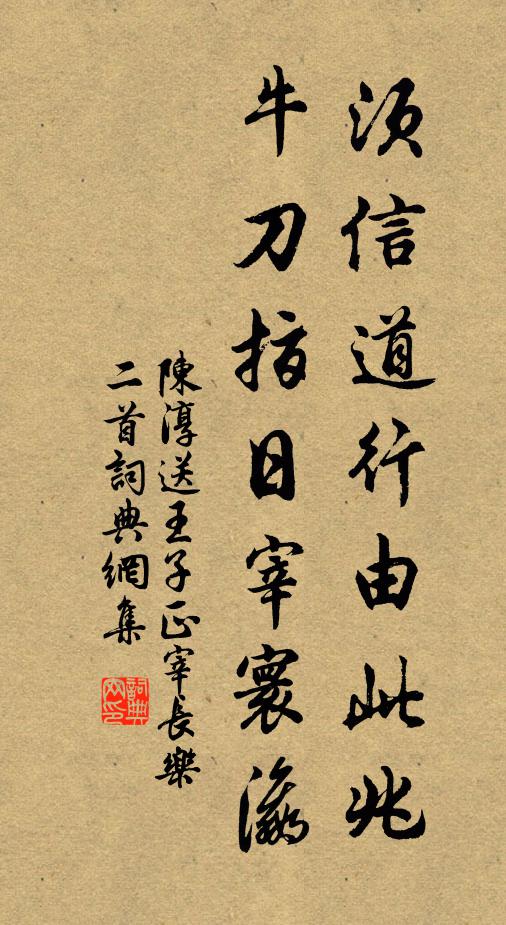 須信道行由此兆
牛刀指日宰寰瀛
陳淳送王子正宰長樂
二首詞典網集
詞典网印